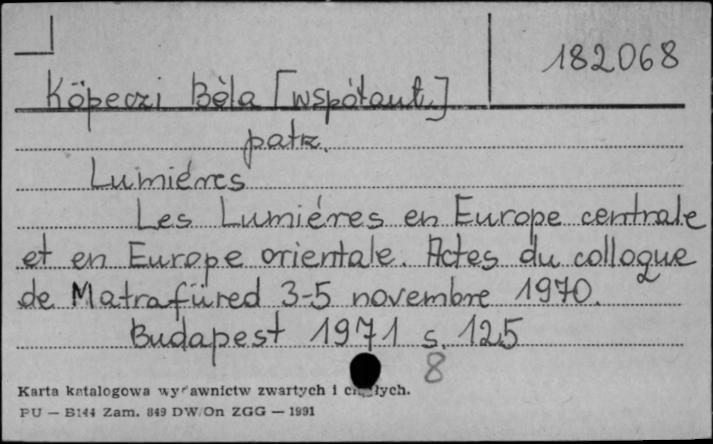 182068
Köpeczi Bèla [współaut.]
patrz
Lumiéres
Les Lumiéres en Europe centrale
et en Europe orientale. Actes du colloque
de Matrafüred 3-5 novembre 1970.
Budapest 1971 s. 125
8
Karta katalogowa wydawnictw zwartych i ciągłych.
PU — B144 Zam. 849 DW/On ZGG — 1991